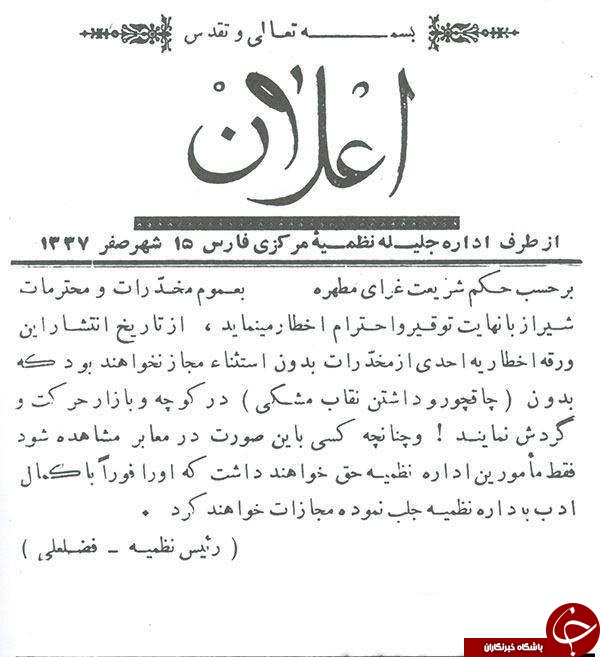 بسمه تعالی و تقدس
اعلان
از طرف اداره جلیله نظمیهٔ مرکزی فارس ۱۵ شهر صفر ۱۳۳۷
بر حسب حکم شریعت غرای مطهره بعموم مخدّرات و محترمات
شیراز با نهایت توقیر و احترام اخطار مینماید ، از تاریخ انتشار این
ورقه اخطاریه احدی از مخدّرات بدون استثناء مجاز نخواهند بود که
بدون ( چاقچور و داشتن نقاب مشکی ) در کوچه و بازار حرکت و
گردش نمایند ! و چنانچه کسی باین صورت در معابر مشاهده شود
فقط مأمورین اداره نظمیه حق خواهند داشت که او را فوراً با کمال
ادب باداره نظمیه جلب نموده مجازات خواهند کرد .
( رئیس نظمیه - فضلعلی )
باشگاه خبرنگاران